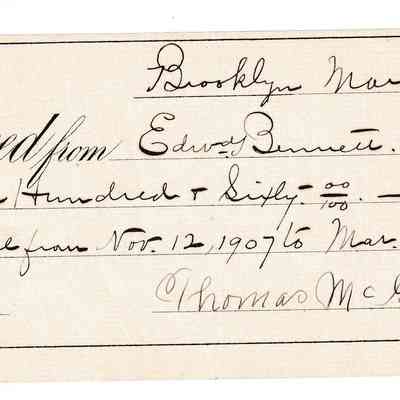 Brooklyn Mar
ed from Edwd Bennett.
Hundred & Sixty 00/100 —
from Nov. 12, 1907 to Mar.
Thomas Mc